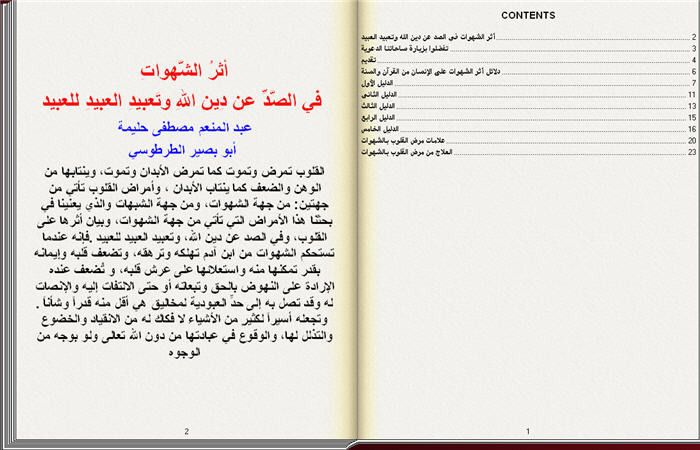 CONTENTS
أثر الشهوات في الصد عن دين الله وتعبيد العبيد 2
تفضلوا بزيارة صاحاتنا الدعوية 3
تقديم 4
دلائل أثر الشهوات على الإنسان من القرآن والسنة 6
الدليل الأول 7
الدليل الثاني 11
الدليل الثالث 13
الدليل الرابع 15
الدليل الخامس 16
علامات مرض القلوب بالشهوات 20
العلاج من مرض القلوب بالشهوات 23
1
أثرُ الشّهوات
في الصّدِّ عن دين الله وتعبيد العبيد للعبيد
عبد المنعم مصطفى حليمة
أبو بصير الطرطوسي
القلوب تمرض وتموت كما تمرض الأبدان وتموت، وينتابها من
الوهن والضعف كما ينتاب الأبدان ، وأمراض القلوب تأتي من
جهتين: من جهة الشهوات، ومن جهة الشبهات والذي يعنينا في
بحثنا هذا الأمراض التي تأتي من جهة الشهوات، وبيان أثرها على
القلوب، وفي الصد عن دين الله، وتعبيد العبيد للعبيد .فإنه عندما
تستحكم الشهوات من ابن آدم تهلكه وترهقه، وتضعف قلبه وإيمانه
بقدر تمكنها منه واستعلانها على عرش قلبه، و تُضعف عنده
الإرادة على النهوض بالحق وتبعاته أو حتى الالتفات إليه والإنصات
له وقد تصل به إلى حدِّ العبودية لمخاليق هي أقل منه قدراً وشأناً .
وتجعله أسيراً لكثير من الأشياء لا فكاك له من الانقياد والخضوع
والتذلل لها، والوقوع في عبادتها من دون الله تعالى ولو بوجه من
الوجوه
2